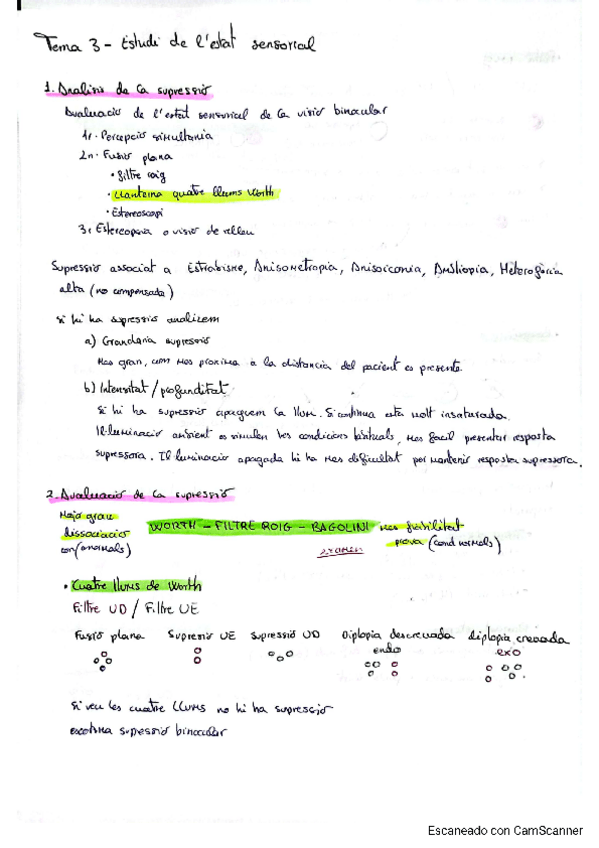 Tema 3 - Estudi de l'estat sensorial
1. Analisis de la supressió
Avaluació de l'estat sensorial de la visió binocular
1r. Percepció simultania
2n. Fusió plana
• Filtre roig
• Llanterna quatre llums Worth
• Estereoscopi
3r Estereopsia o visió de relleu
Supressió associat a Estrabisme, Anisometropia, Aniseiconia, Ambliopia, Heteroforia
alta (no compensada)
Si hi ha supressió analitzem
a) Grandaria supressió
Mes gran, com mes proxima a la distancia del pacient es presente.
b) Intensitat / profunditat
Si hi ha supressió apaguem la llum. Si continua està molt instaurada.
Il·luminació ambient es simulen les condicions habituals, mes facil presentar resposta
supressora. Il·luminació apagada hi ha mes dificultat per mantenir resposta supressora.
2. Avaluació de la supressió
Major grau
dissociació
(anormals)
WORTH - FILTRE ROIG - BAGOLINI
examen
mes fiabilitat
prova (cond normals)
• Quatre llums de Worth
Filtre UD / Filtre UE
Fusió plana Supressió UE Supressió UD Diplopia descreuada diplopia creuada
endo exo
Si veu les quatre llums no hi ha supressió
supressió binocular
Escaneado con CamScanner